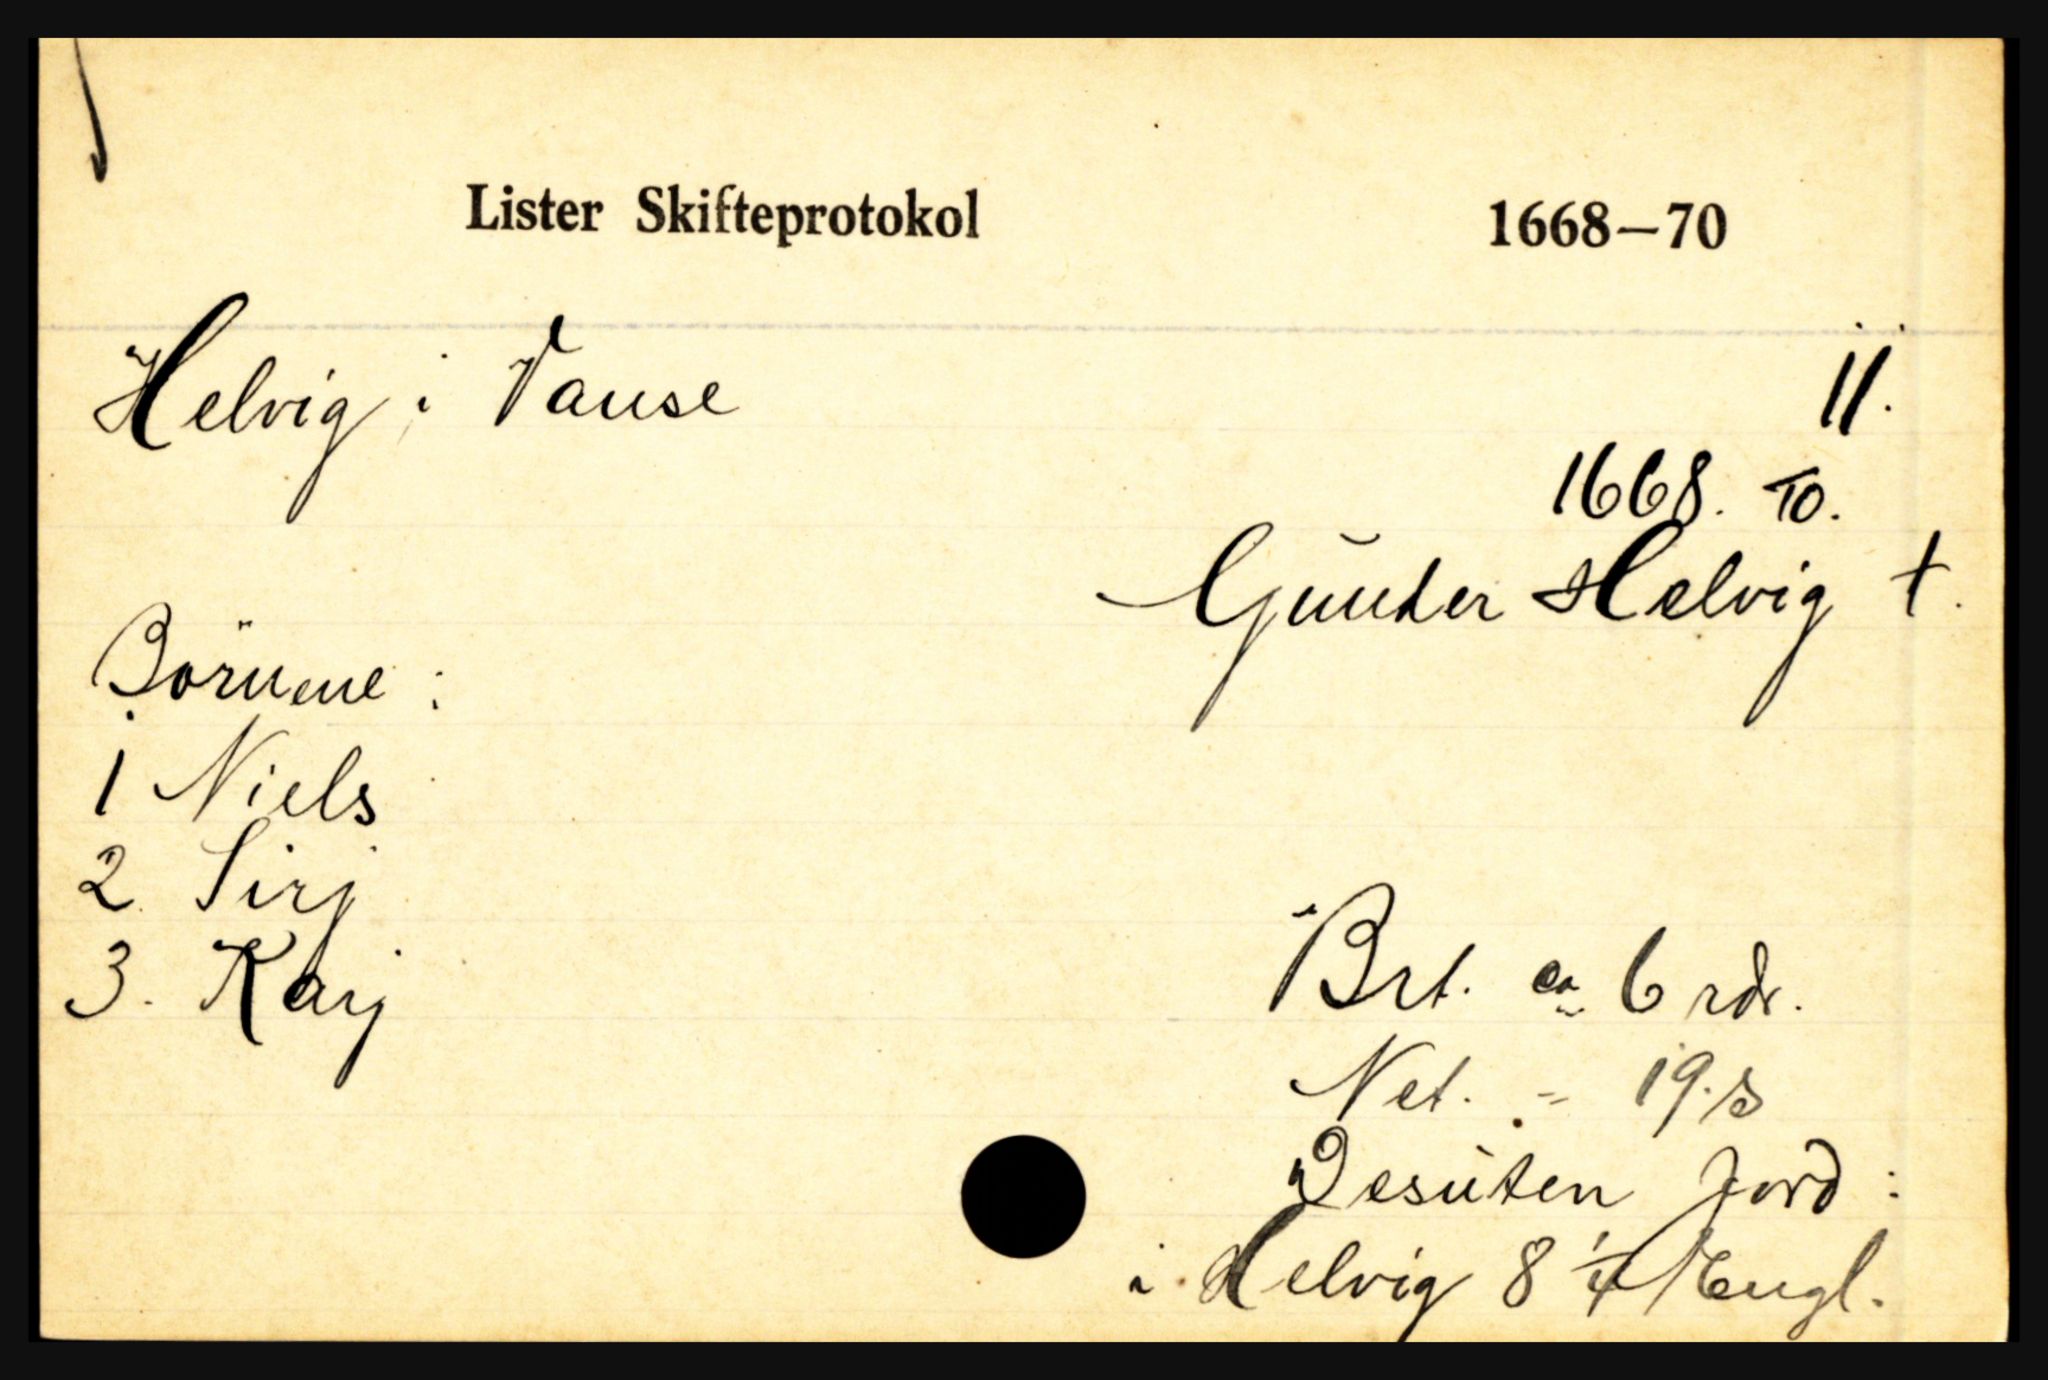 Lister Skifteprotokol 1668—70
Helvig i Vanse 11.
1668. 10.
Gunder Helvig †.
Börnene:
1 Niels
2 Sirj
3. Karj
Brt. ca 6 rdr.
Net. - 19. s
Desuten Jord:
i Helvig 8 1/4 Mengl.